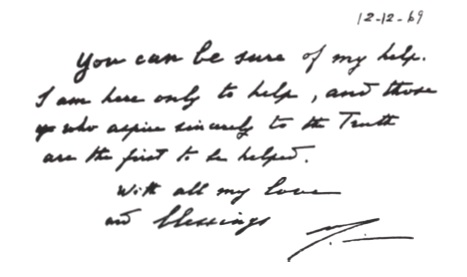 12-12-69
You can be sure of my help.
I am here only to help, and those
who aspire sincerely to the Truth
are the first to be helped.
With all my love
and blessings